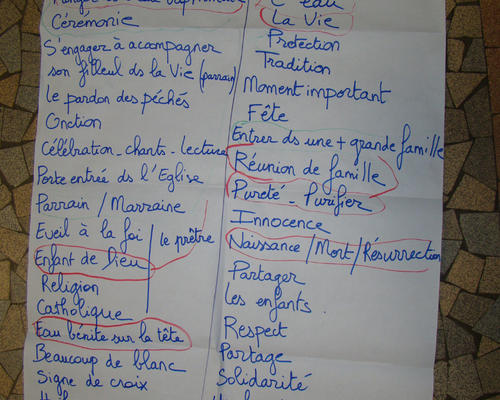 Cérémonie
S'engager à acompagner
son filleul ds la Vie (parrain)
le pardon des péchés
Onction
Célébration - chants - lecture
Porte entrée ds l'Eglise
Parrain / Marraine
Eveil à la foi
le prêtre
Enfant de Dieu
Religion
Catholique
Eau bénite sur la tête
Beaucoup de blanc
Signe de croix
L'eau
La Vie
Protection
Tradition
Moment important
Fête
Entrer ds une + grande famille
Réunion de famille
Pureté - Purifier
Innocence
Naissance / Mort / Résurrection
Partager
Les enfants.
Respect
Partage
Solidarité